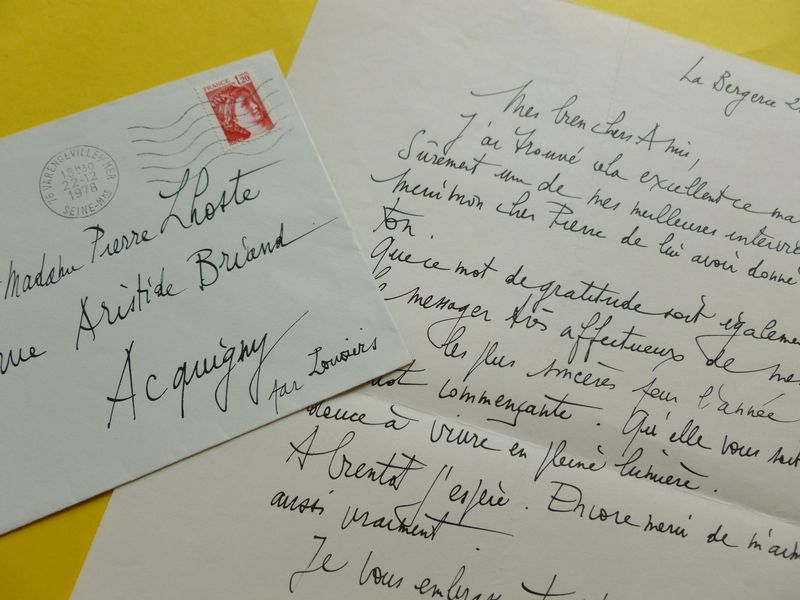 FRANCE 1,20
76 VARENGEVILLE S/MER
18H30
22-12
1978
SEINE-MME
Madame Pierre Lhoste
rue Aristide Briand
Acquigny
par Louviers
La Bergerie 2
Mes bien chers Amis,
J'ai trouvé cela excellent ce ma
Sûrement une de mes meilleures intervie
merci mon cher Pierre de lui avoir donné
ton.
Que ce mot de gratitude soit égalemen
le messager très affectueux de me
les plus sincères pour l'année
commençante. Qu'elle vous soit
douce à vivre en pleine lumière.
A bientôt j'espère. Encore merci de m'aim
aussi vraiment.
Je vous embrasse